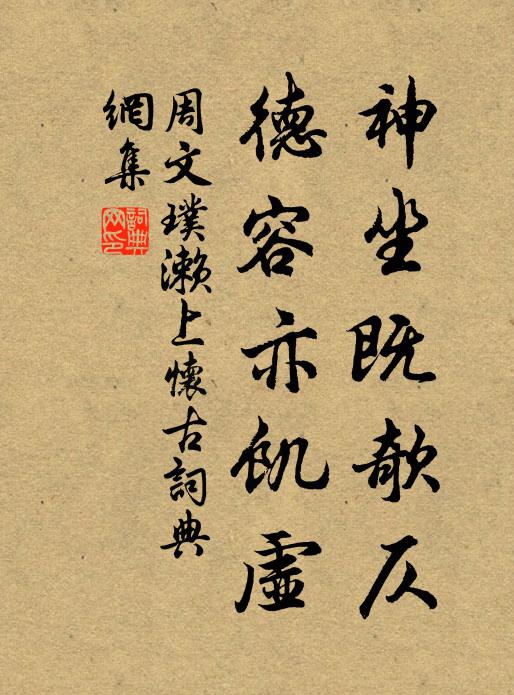 神坐既欹仄
德容亦飢虛
周文璞瀨上懷古詞典
網集
詞典網印